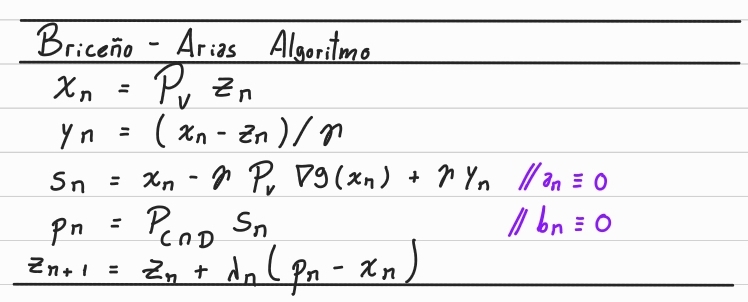 Briceño - Arias Algoritmo
xₙ = P_V zₙ
yₙ = (xₙ - zₙ)/γ
sₙ = xₙ - γ P_V ∇g(xₙ) + γ yₙ //aₙ ≡ 0
pₙ = P_{C∩D} sₙ //bₙ ≡ 0
zₙ₊₁ = zₙ + λₙ(pₙ - xₙ)